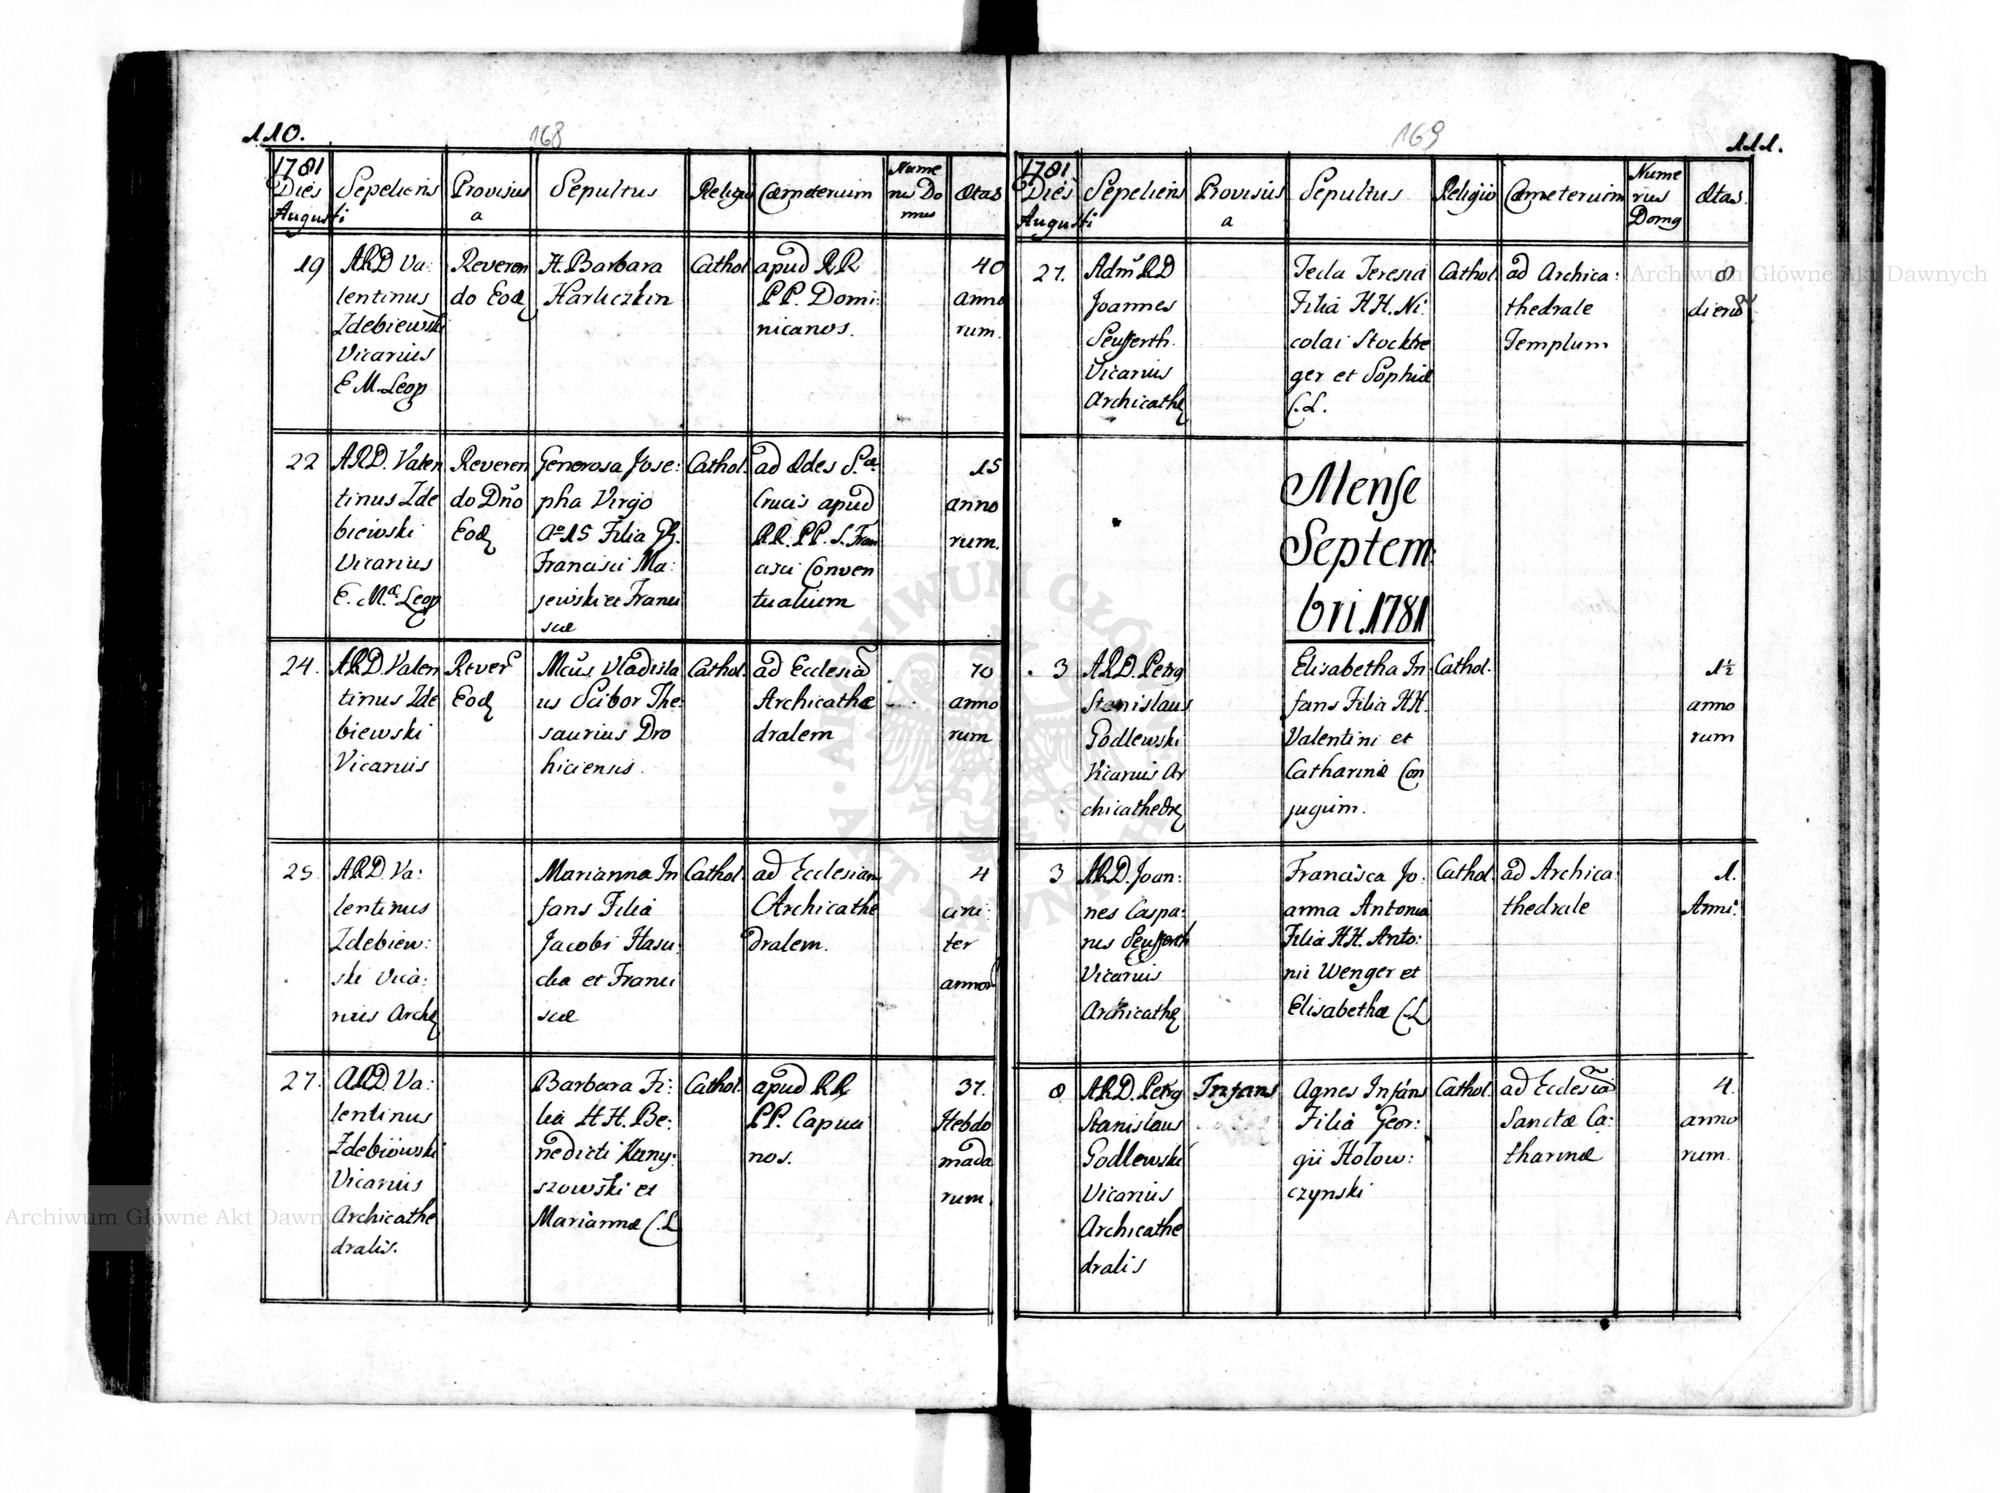 110.
168
1781
Dies
Augusti
Sepeliens
Provisus
a
Sepultus
Religio
Cœmeterium
Nume
rus Do
mus
Ætas
19
ARD Va:
lentinus
Zdebiewski
Vicarius
E.M. Leop
Reveren
do Eod
H. Barbara
Harliczkin
Cathol
apud RR
PP. Domi:
nicanos.
40
anno
rum.
22
ARD. Valen
tinus Zde
biewski
Vicarius
E. Ma. Leop
Reveren
do Dño
Eod
Generosa Jose:
pha Virgo
Filia
Francisci Ma:
jewski et Franci
scæ
Cathol.
ad Ædes S.æ
Crucis apud
RR. PP. S. Fran
cisci Conven
tualium
15
anno
rum.
24.
ARD. Valen
tinus Zde
biewski
Vicarius
Rever
Eod
Mcus Vladisla
us Scibor The
saurius Dro
hiciensis.
Cathol.
ad Ecclesia
Archicathe
dralem
70
anno
rum
25
ARD. Va:
lentinus
Zdebiew:
ski Vica:
rius Arch
Marianna In
fans Filia
Jacobi
et Franci
scæ
Cathol.
ad Ecclesiam
Archicathe
dralem.
4
circi
ter
annor
27.
ARD. Va:
lentinus
Zdebiowski
Vicarius
Archicathe
dralis.
Barbara Fi:
lia HH. Be:
nedicti
szowski et
Mariannæ C.L
Cathol.
apud RR
PP. Capuci
nos.
37.
Hebdo
mada
rum.
111.
169
1781
Dies
Augusti
Sepeliens
Provisus
a
Sepultus
Religio
Cœmeterium
Nume
rus
Domq
Ætas.
27.
Adm RD
Joannes
Seufferth
Vicarius
Archicath
Tecla Teresia
Filia HH. Ni:
colai Stockhe
ger et Sophiæ
C.L.
Cathol.
ad Archica:
thedrale
Templum
8
dierū
Mense
Septem:
bri. 1781
3
ARD. Petrq
Stanislaus
Godlewski
Vicarius Ar
chicathedr
Elisabetha In
fans Filia HH.
Valentini et
Catharinæ Con
jugum.
Cathol.
1½
anno
rum
3
ARD. Joan:
nes Caspa:
rus Seufferth
Vicarius
Archicath
Francisca Jo:
anna Antonia
Filia HH. Anto:
nii Wenger et
Elisabethæ C.L
Cathol.
ad Archica:
thedrale
1.
Anni.
8
ARD. Petrq
Stanislaus
Godlewski
Vicarius
Archicathe
dralis
Infans
Agnes Infans
Filia Geor:
gii Holow:
czynski
Cathol.
ad Ecclesia
Sanctæ Ca:
tharinæ
4.
anno
rum.
Archiwum Główne Akt Dawnych
Archiwum Główne Akt Dawnych
ARCHIWUM GŁÓWNE AKT DAWNYCH